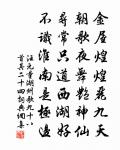 金屋煌煌九天
朝歌夜舞神仙
尋常只道西湖好
不識淮南是極邊
汪元量湖州歌九十八
首其二十四詞典網集